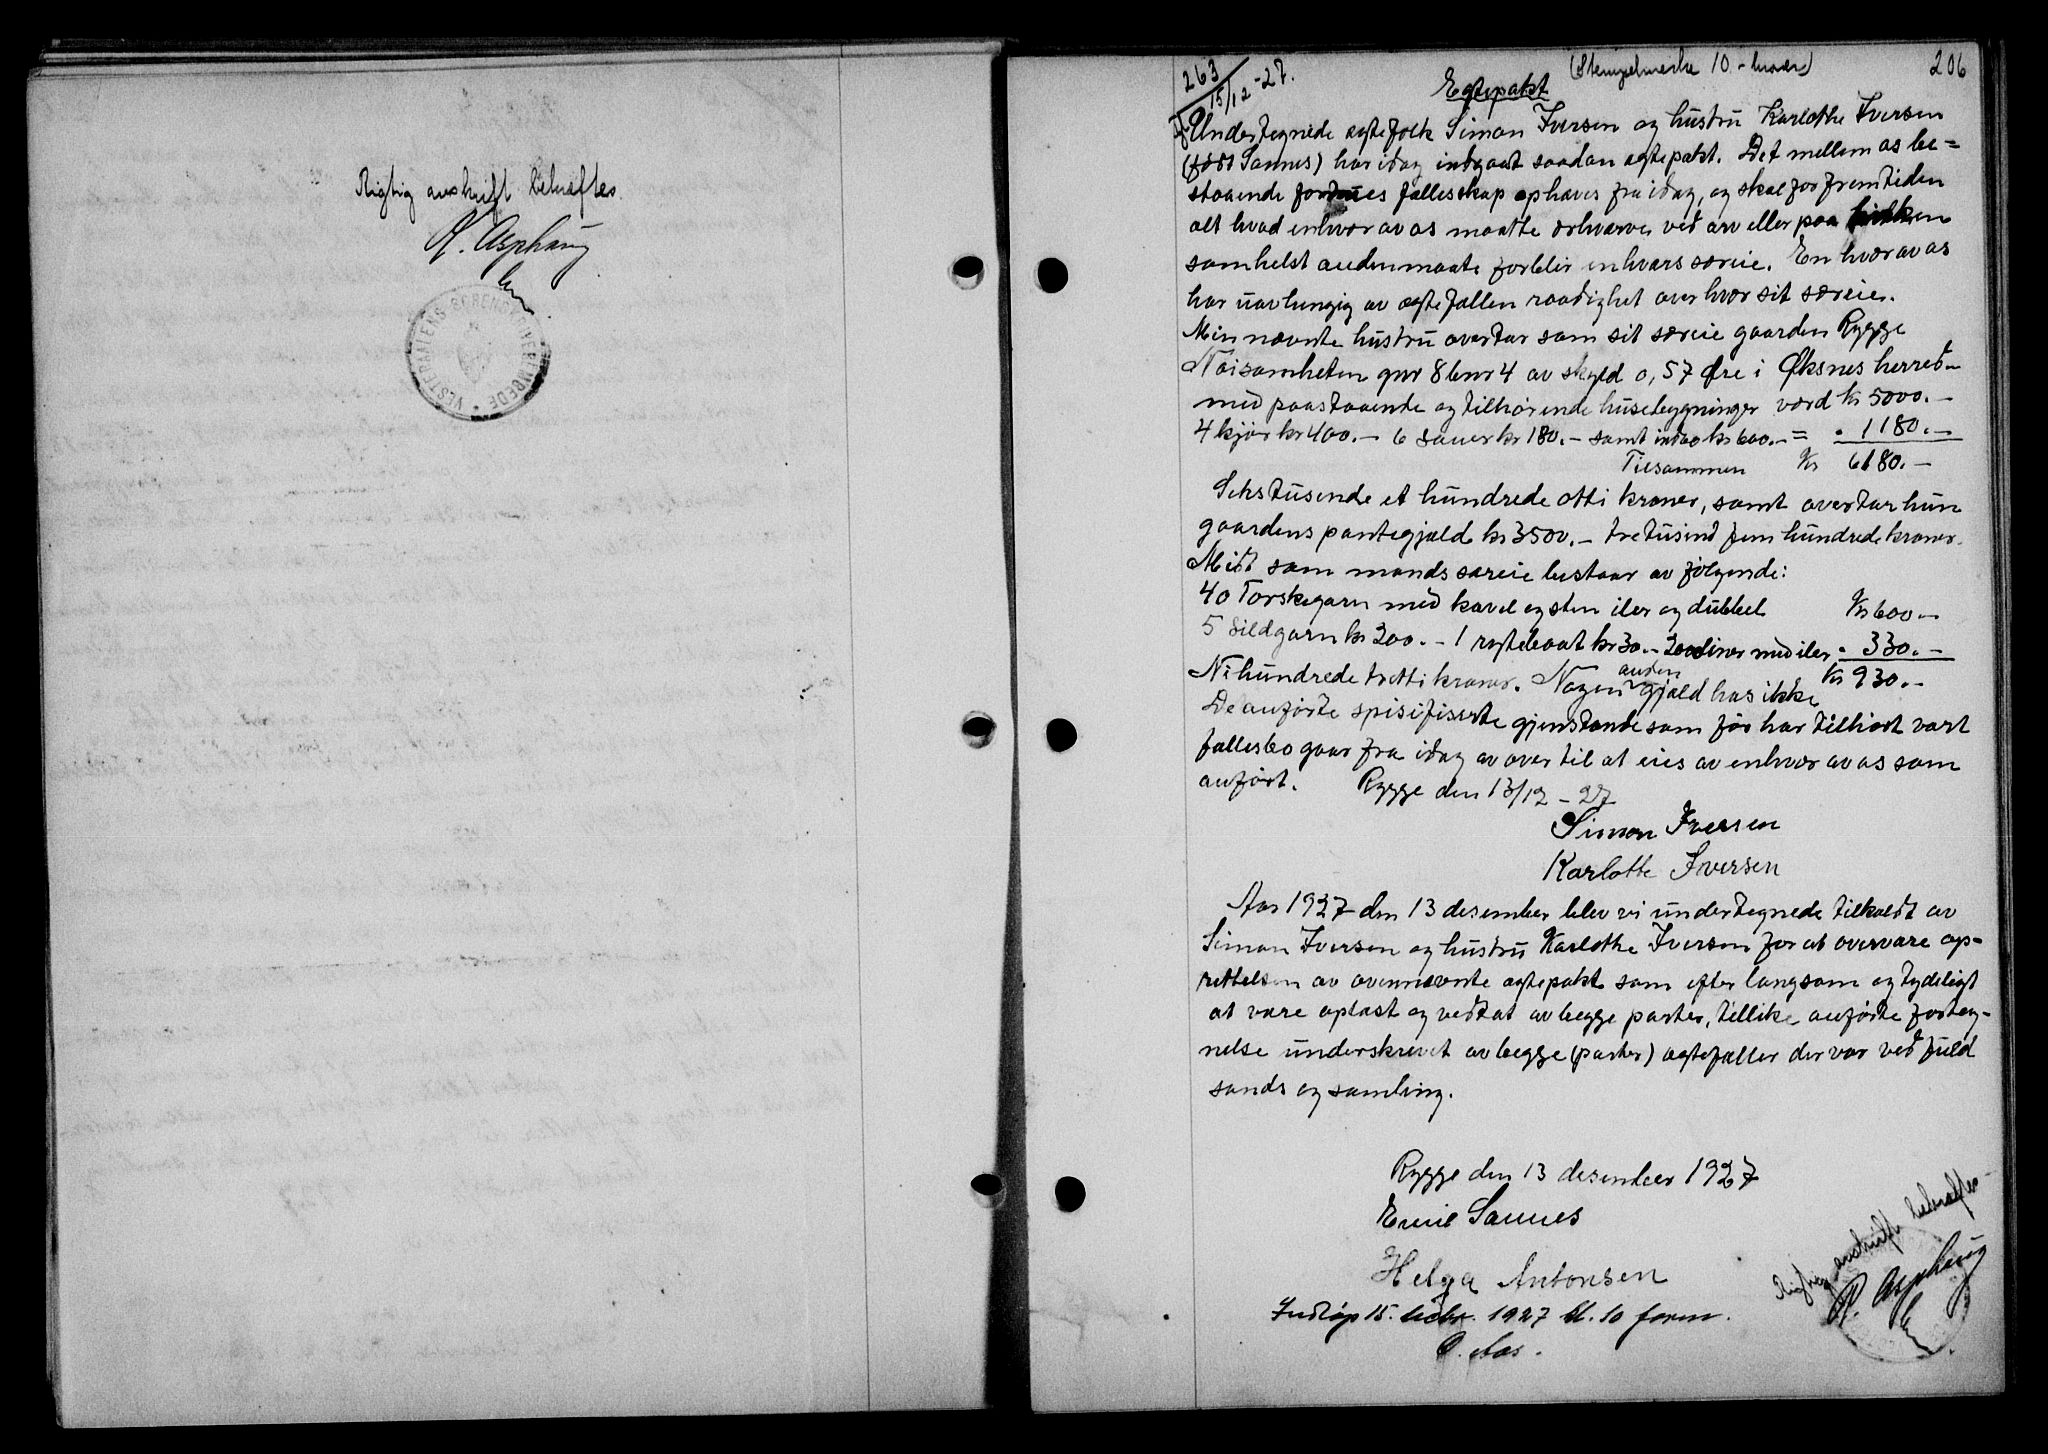 Rigtig avskrift bekræftes.
A. Asphaug
VESTERAALENS SORENSKRIVEREMBEDE
263
15/12-27.
(Stempelmerke 10-kroner)
206
Egtepakt
Undertegnede egtefolk Simon Iversen og hustru Karlotte Iversen
(født Sannes) har idag indgaat saadan egtepakt. Det mellem os be=
staaende formues fællesskap ophæves fra idag, og skal for fremtiden
alt hvad enhver av os maatte erhverve ved arv eller paa hvilken
somhelst anden maate forblir enhvers særeie. En hver av os
har uavhengig av egtefællen raadighet over hver sit særeie.
Min nævnte hustru overtar som sit særeie gaarden Rygge
Nøisomheten gnr 8 bnr 4 av skyld 0,57 Øre i Øksnes herred -
med paastaaende og tilhørende husebygninger værd kr 5000.-
4 kjør kr 400.- 6 sauer kr 180.- samt indbo kr 600.- = " 1180.-
Tilsammen Kr 6180.-
Sekstusende et hundrede otti kroner, samt overtar hun
gaardens pantegjæld kr 3500.- tretusind fem hundrede kroner.
Mit som mands særeie bestaar av følgende:
40 Torskegarn med kavel og sten iler og dubbel Kr 600 -
5 Sildgarn kr 300.- 1 regtebaat kr 30.- liner med iler " 330.-
Nihundrede tretti kroner. Nogen anden gjæld has ikke Kr 930.-
De anførte spisifiserte gjenstande som før har tilhørt vart
fællesbo gaar fra idag av over til at eies av enhver av os som
anført. Rygge den 13/12 - 27
Simon Iversen
Karlotte Iversen
Aar 1927 den 13 desember blev vi undertegnede tilkaldt av
Simon Iversen og hustru Karlotte Iversen for at overvære op-
rettelsen av ovennævnte egtepakt som efter langsom og tydeligt
at være oplæst og vedtat av begge parter, tillike anførte forteg-
nelse underskrevet av begge (parter) egtefæller der var ved fuld
sands og samling.
Rygge den 13 desember 1927
Emil Sannes
Helga Antonsen
Indløp 15. decbr. 1927 kl. 10 form.
O. Aas.
Rigtig avskrift bekræftes
A. Asphaug